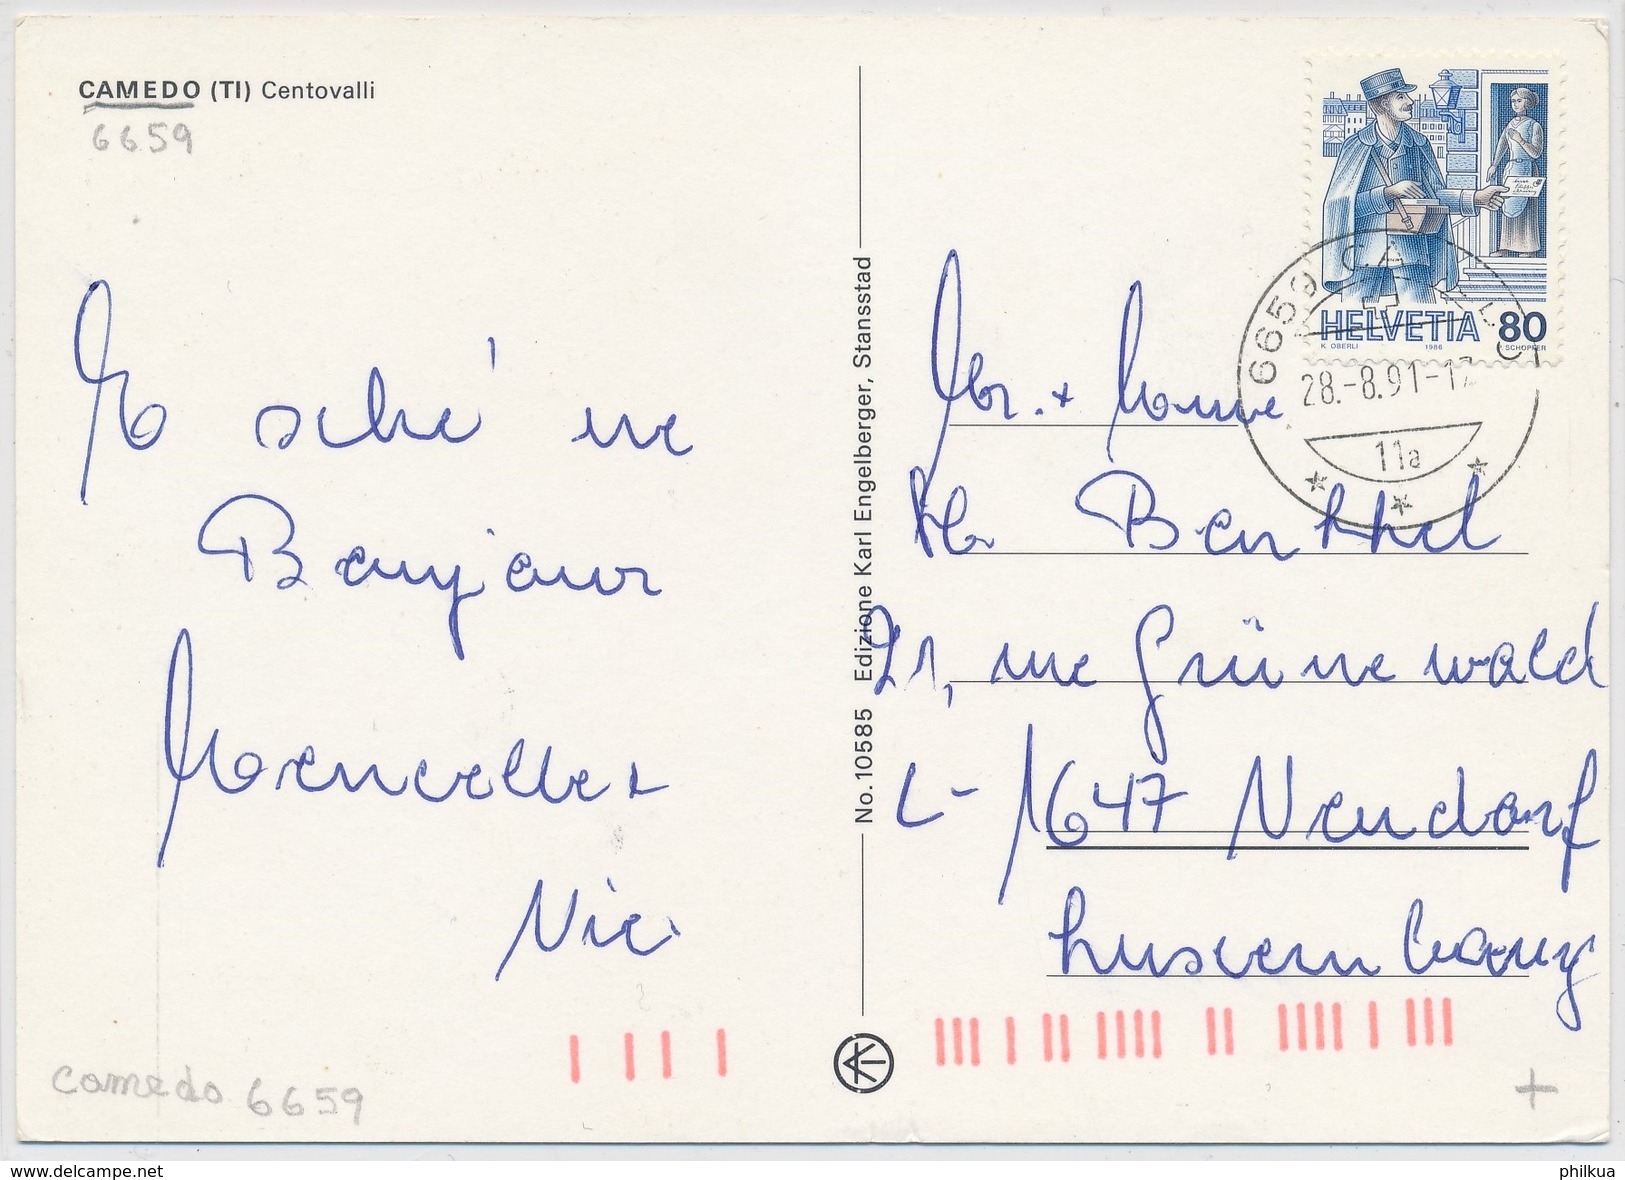 CAMEDO (TI) Centovalli
6659
E sché ne
Bonjour
Nic
camedo 6659
No. 10585 Edizione Karl Engelberger, Stansstad
HELVETIA 80
K OBERLI 1986 P. SCHOPFER
6659 CAMEDO
28.-8.91-17
11a
Mr. + Mme
21, rue Grünewald
L-1647 Neudorf
Luxembourg
+
www.delcampe.net
philkua